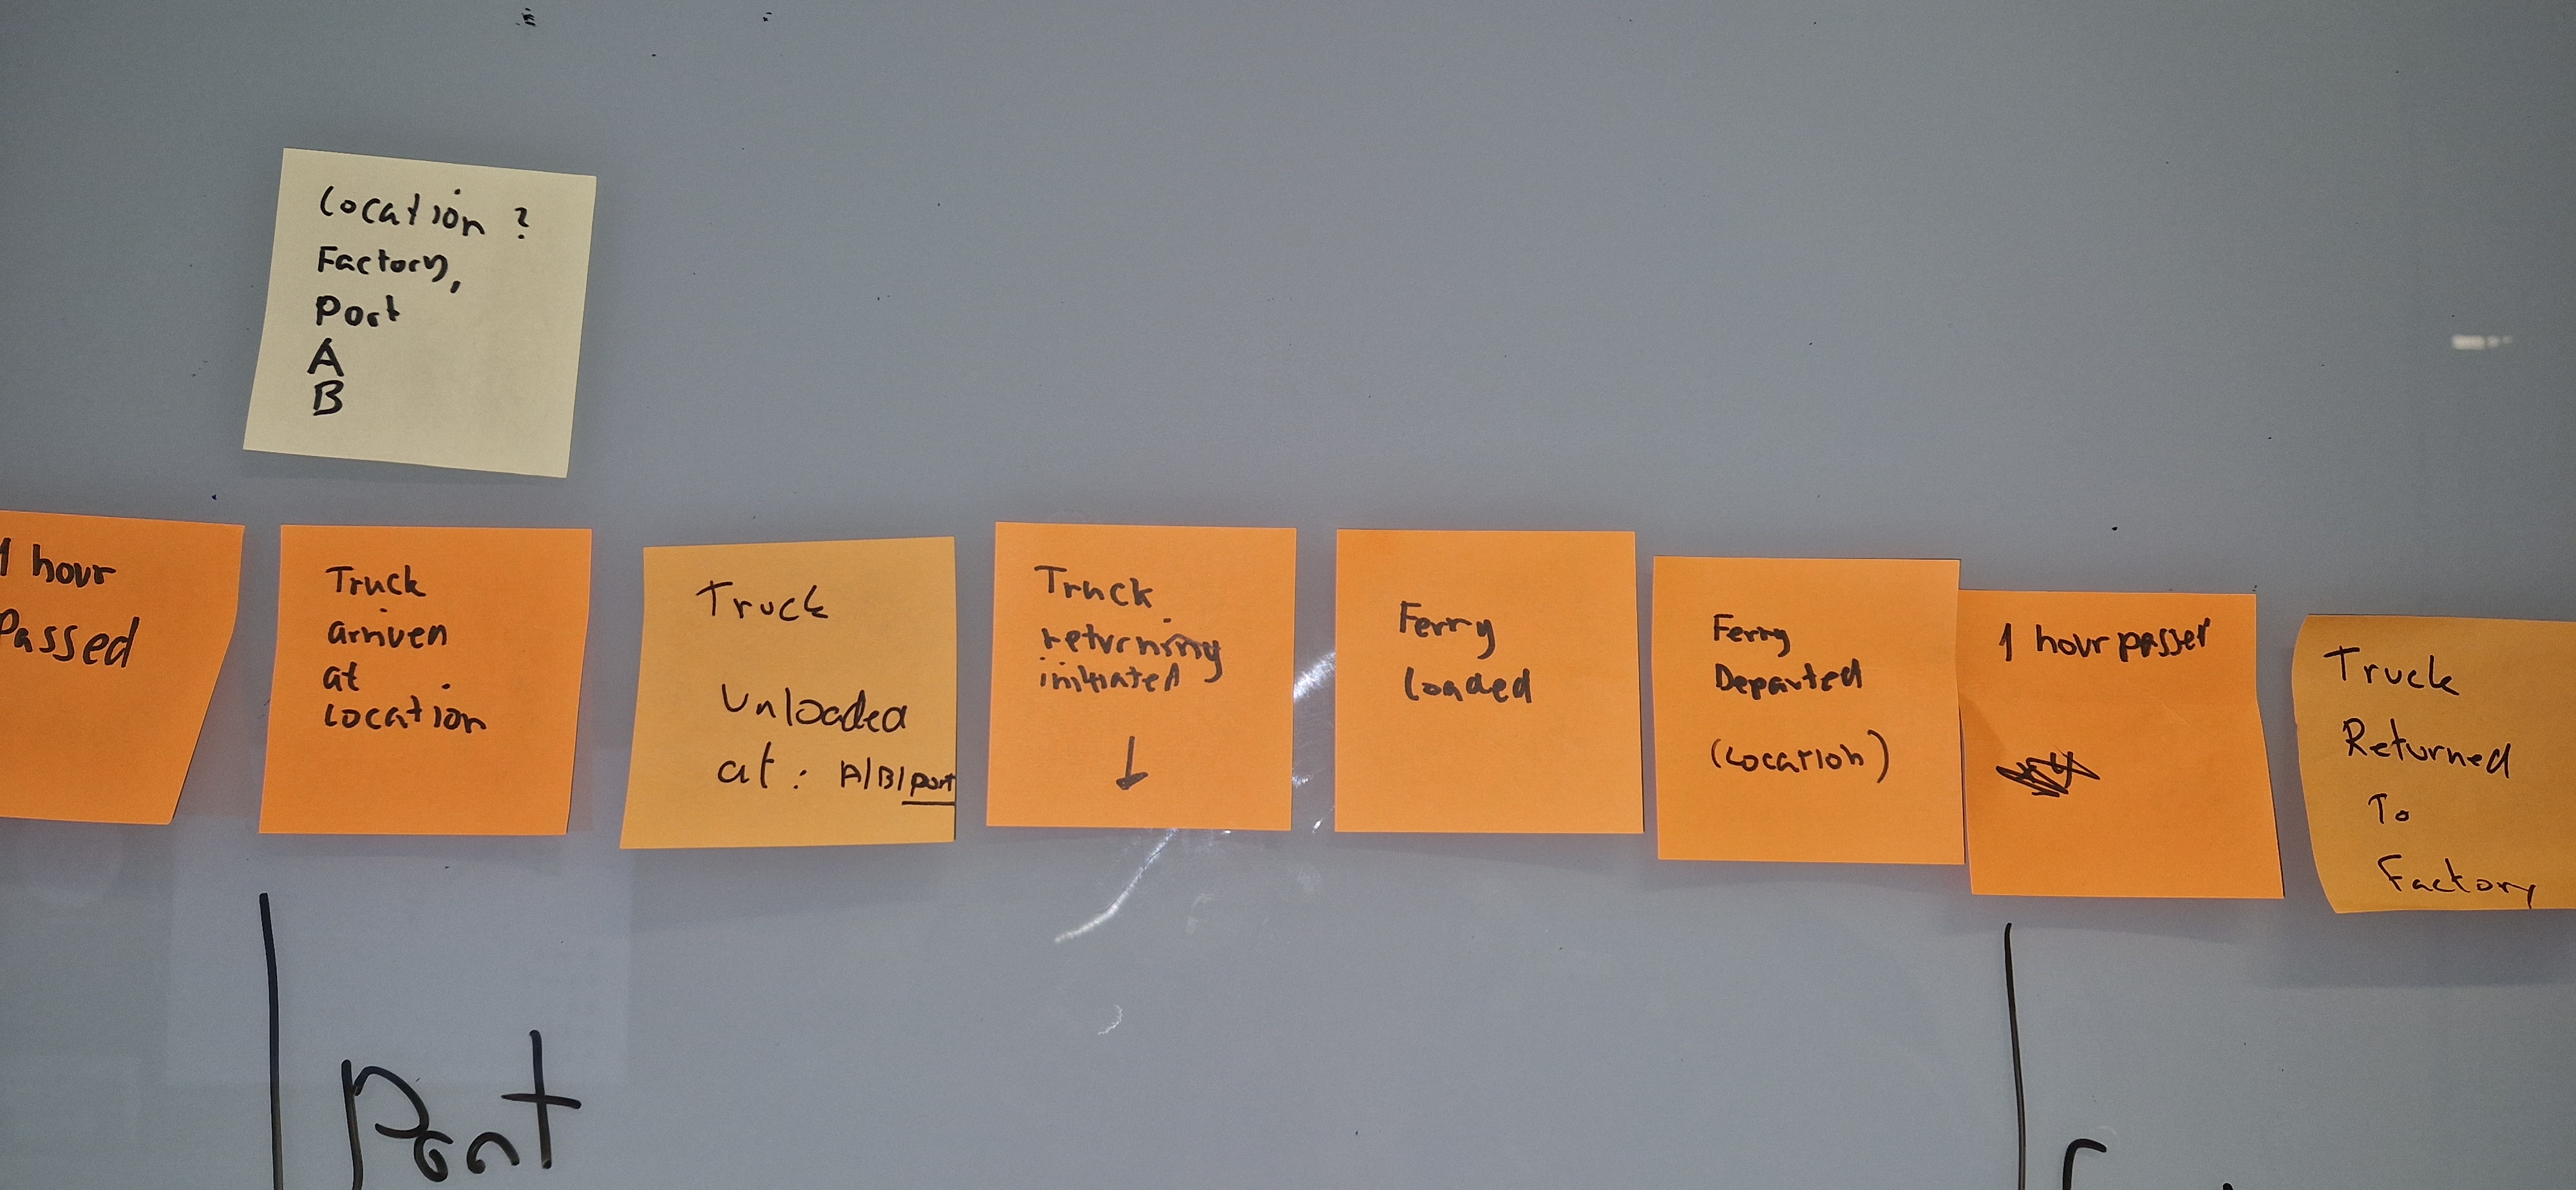 Location ?
Factory,
Port
A
B
1 hour
Passed
Truck
arriven
at
Location
Truck
Unloaded
at : A/B/port
Truck
returning
initiated
↓
Ferry
Loaded
Ferry
Departed
(Location)
1 hour passed
Truck
Returned
To
Factory
Port